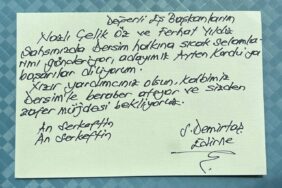 Değerli Eş Başkanlarım
Nazlı Çelik Öz ve Ferhat Yıldız
Şahsınızda Dersim halkına sıcak selamla-
rımı gönderiyor, adayımız Ayten Kordu'ya
başarılar diliyorum.
Xızır yardımcınız olsun, kalbimiz
Dersim'le beraber atıyor ve sizden
zafer müjdesi bekliyoruz.
An Serkeftin
An Serkeftin
S. Demirtaş
Edirne